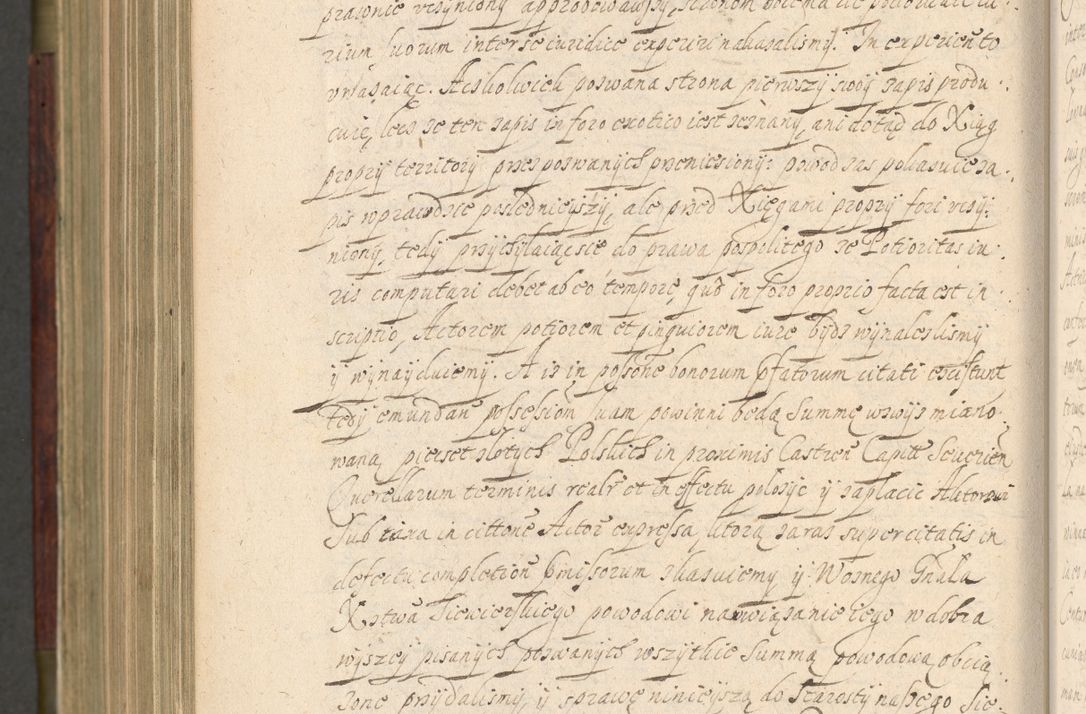 prawnie uczyniony approbowawszy,
rium suorum inter se iuridice experiri nakazalismy. In experiento
wkasaiąc. Aczkolwiek poswana strona pierwszy swoy zapis produ
cuie, lecz ze ten zapis in foro exotico iest zeznany, ani dotąd do Xiąg
propry territory przez poswanych przeniesiony: powod zas pokasuie za
pis wprawdzie posledniejszy, ale przed Xięgami propry fori uczy:
niony, tedy przychylaiąc sie do prawa pospolitego ze Potioritas iu
ris computari debet ab eo tempore, quo in foro proprio facta est in
scriptio, Actorem potiorem et pinguiorem iure bydz wynalezlismy
y wynayduiemy. A iz in possone bonorum pfatorum citati existunt
tedy emundan possesion suam powinni będą Summę wzwysz miano
waną pięcset złotych Polskich in proximis Castren Capitt Severien
Querellarum terminis realr et in effectu polozyc y zaplacic Aktorowi
Sub taxa in cittone Actor expressa, ktorą zaras super citatis in
defectu completion pmissorum skasuiemy y Woznego Gnała
Xstwa Siewierskiego powodowi na wiązanie iego w dobra
wyszey pisanych poswanych wszytkie Summą powodową obcią
zone przydalismy, y sprawę ninieyszą do Starosty naszego Sie